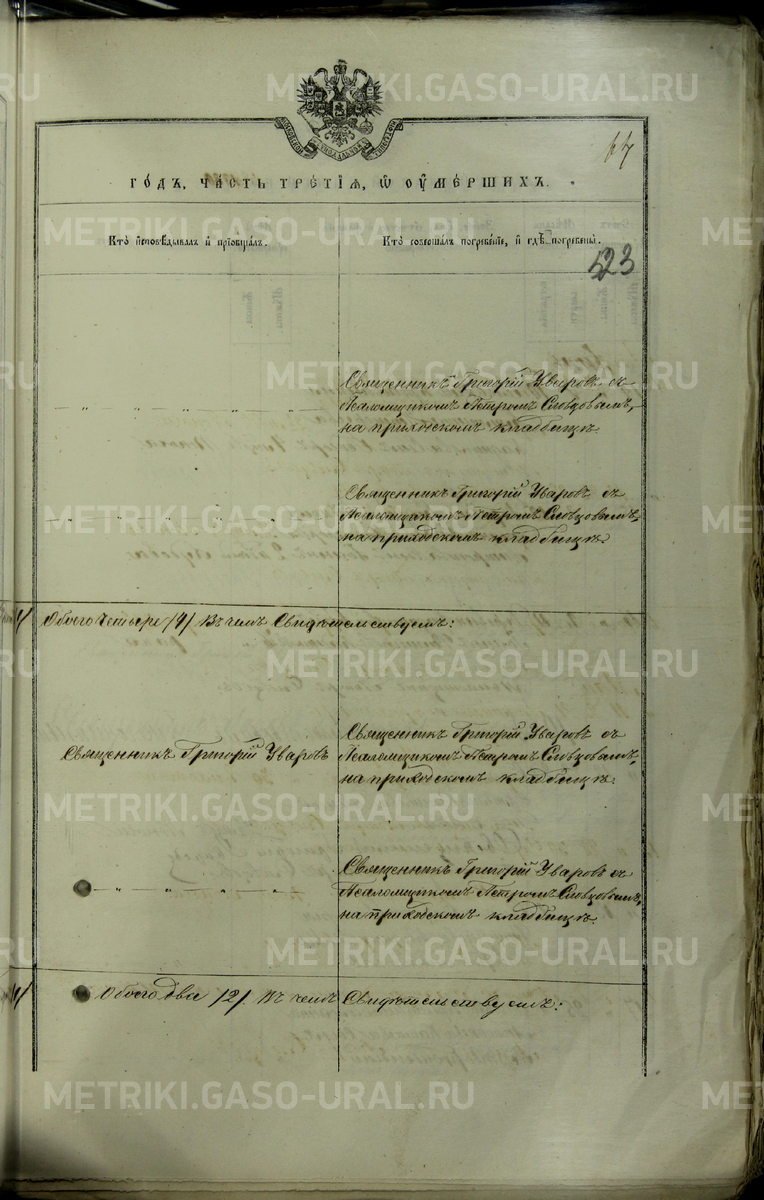 METRIKI.GASO-URAL.RU
67
ГО́ДЪ, ЧА́СТЬ ТРЕ́ТІѦ, Ѡ҆ ОУ҆МЕ́РШИХЪ.
Кто̀ и҆сповѣ́дывалъ и҆ пріѡбща́лъ.
Кто̀ соверша́лъ погребе́ніе, и҆ гдѣ̀ погребены̀.
523
Священникъ Григорій Уваровъ съ
Псаломщикомъ Петромъ Словцовымъ,
на приходскомъ кладбищѣ.
Священникъ Григорій Уваровъ съ
Псаломщикомъ Петромъ Словцовымъ,
на приходскомъ кладбищѣ.
Обоего четыре /4/ Въ чемъ Свидѣтельствуемъ:
Священникъ Григорій Уваровъ
Священникъ Григорій Уваровъ съ
Псаломщикомъ Петромъ Словцовымъ,
на приходскомъ кладбищѣ.
Священникъ Григорій Уваровъ съ
Псаломщикомъ Петромъ Словцовымъ,
на приходскомъ кладбищѣ.
Обоего два /2/ Въ чемъ Свидѣтельствуемъ: